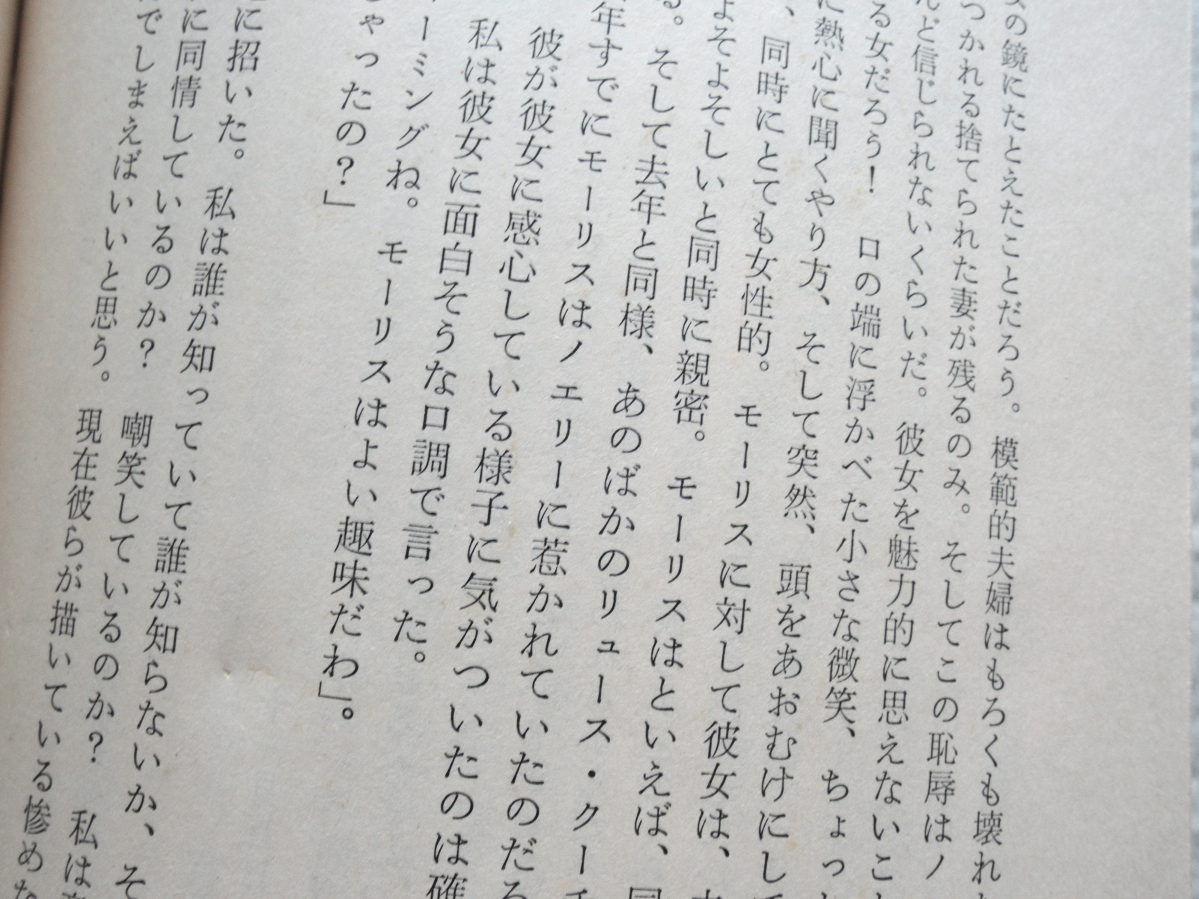 の鏡にたとえたことだろう。模範的夫婦はもろくも壊れ
つかれる捨てられた妻が残るのみ。そしてこの恥辱はノ
んど信じられないくらいだ。彼女を魅力的に思えないこ
る女だろう！　口の端に浮かべた小さな微笑、ちょっ
に熱心に聞くやり方、そして突然、頭をあおむけにして
、同時にとても女性的。モーリスに対して彼女は、
よそよそしいと同時に親密。モーリスはといえば、同
る。そして去年と同様、あのばかのリュース・クーチ
年すでにモーリスはノエリーに惹かれていたのだろ
彼が彼女に感心している様子に気がついたのは確
私は彼女に面白そうな口調で言った。
ーミングね。モーリスはよい趣味だわ」。
ゃったの？」
に招いた。私は誰が知っていて誰が知らないか、そ
に同情しているのか？　嘲笑しているのか？　私は
でしまえばいいと思う。現在彼らが描いている惨めな